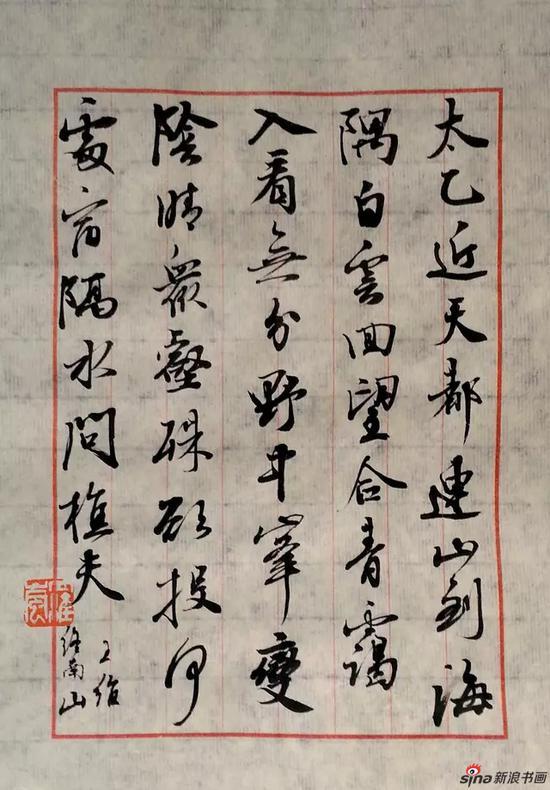 太乙近天都連山到海
隅白雲回望合青靄
入看無分野中峯變
陰晴衆壑殊欲投何
處宿隔水問樵夫
王維
終南山
sina新浪书画